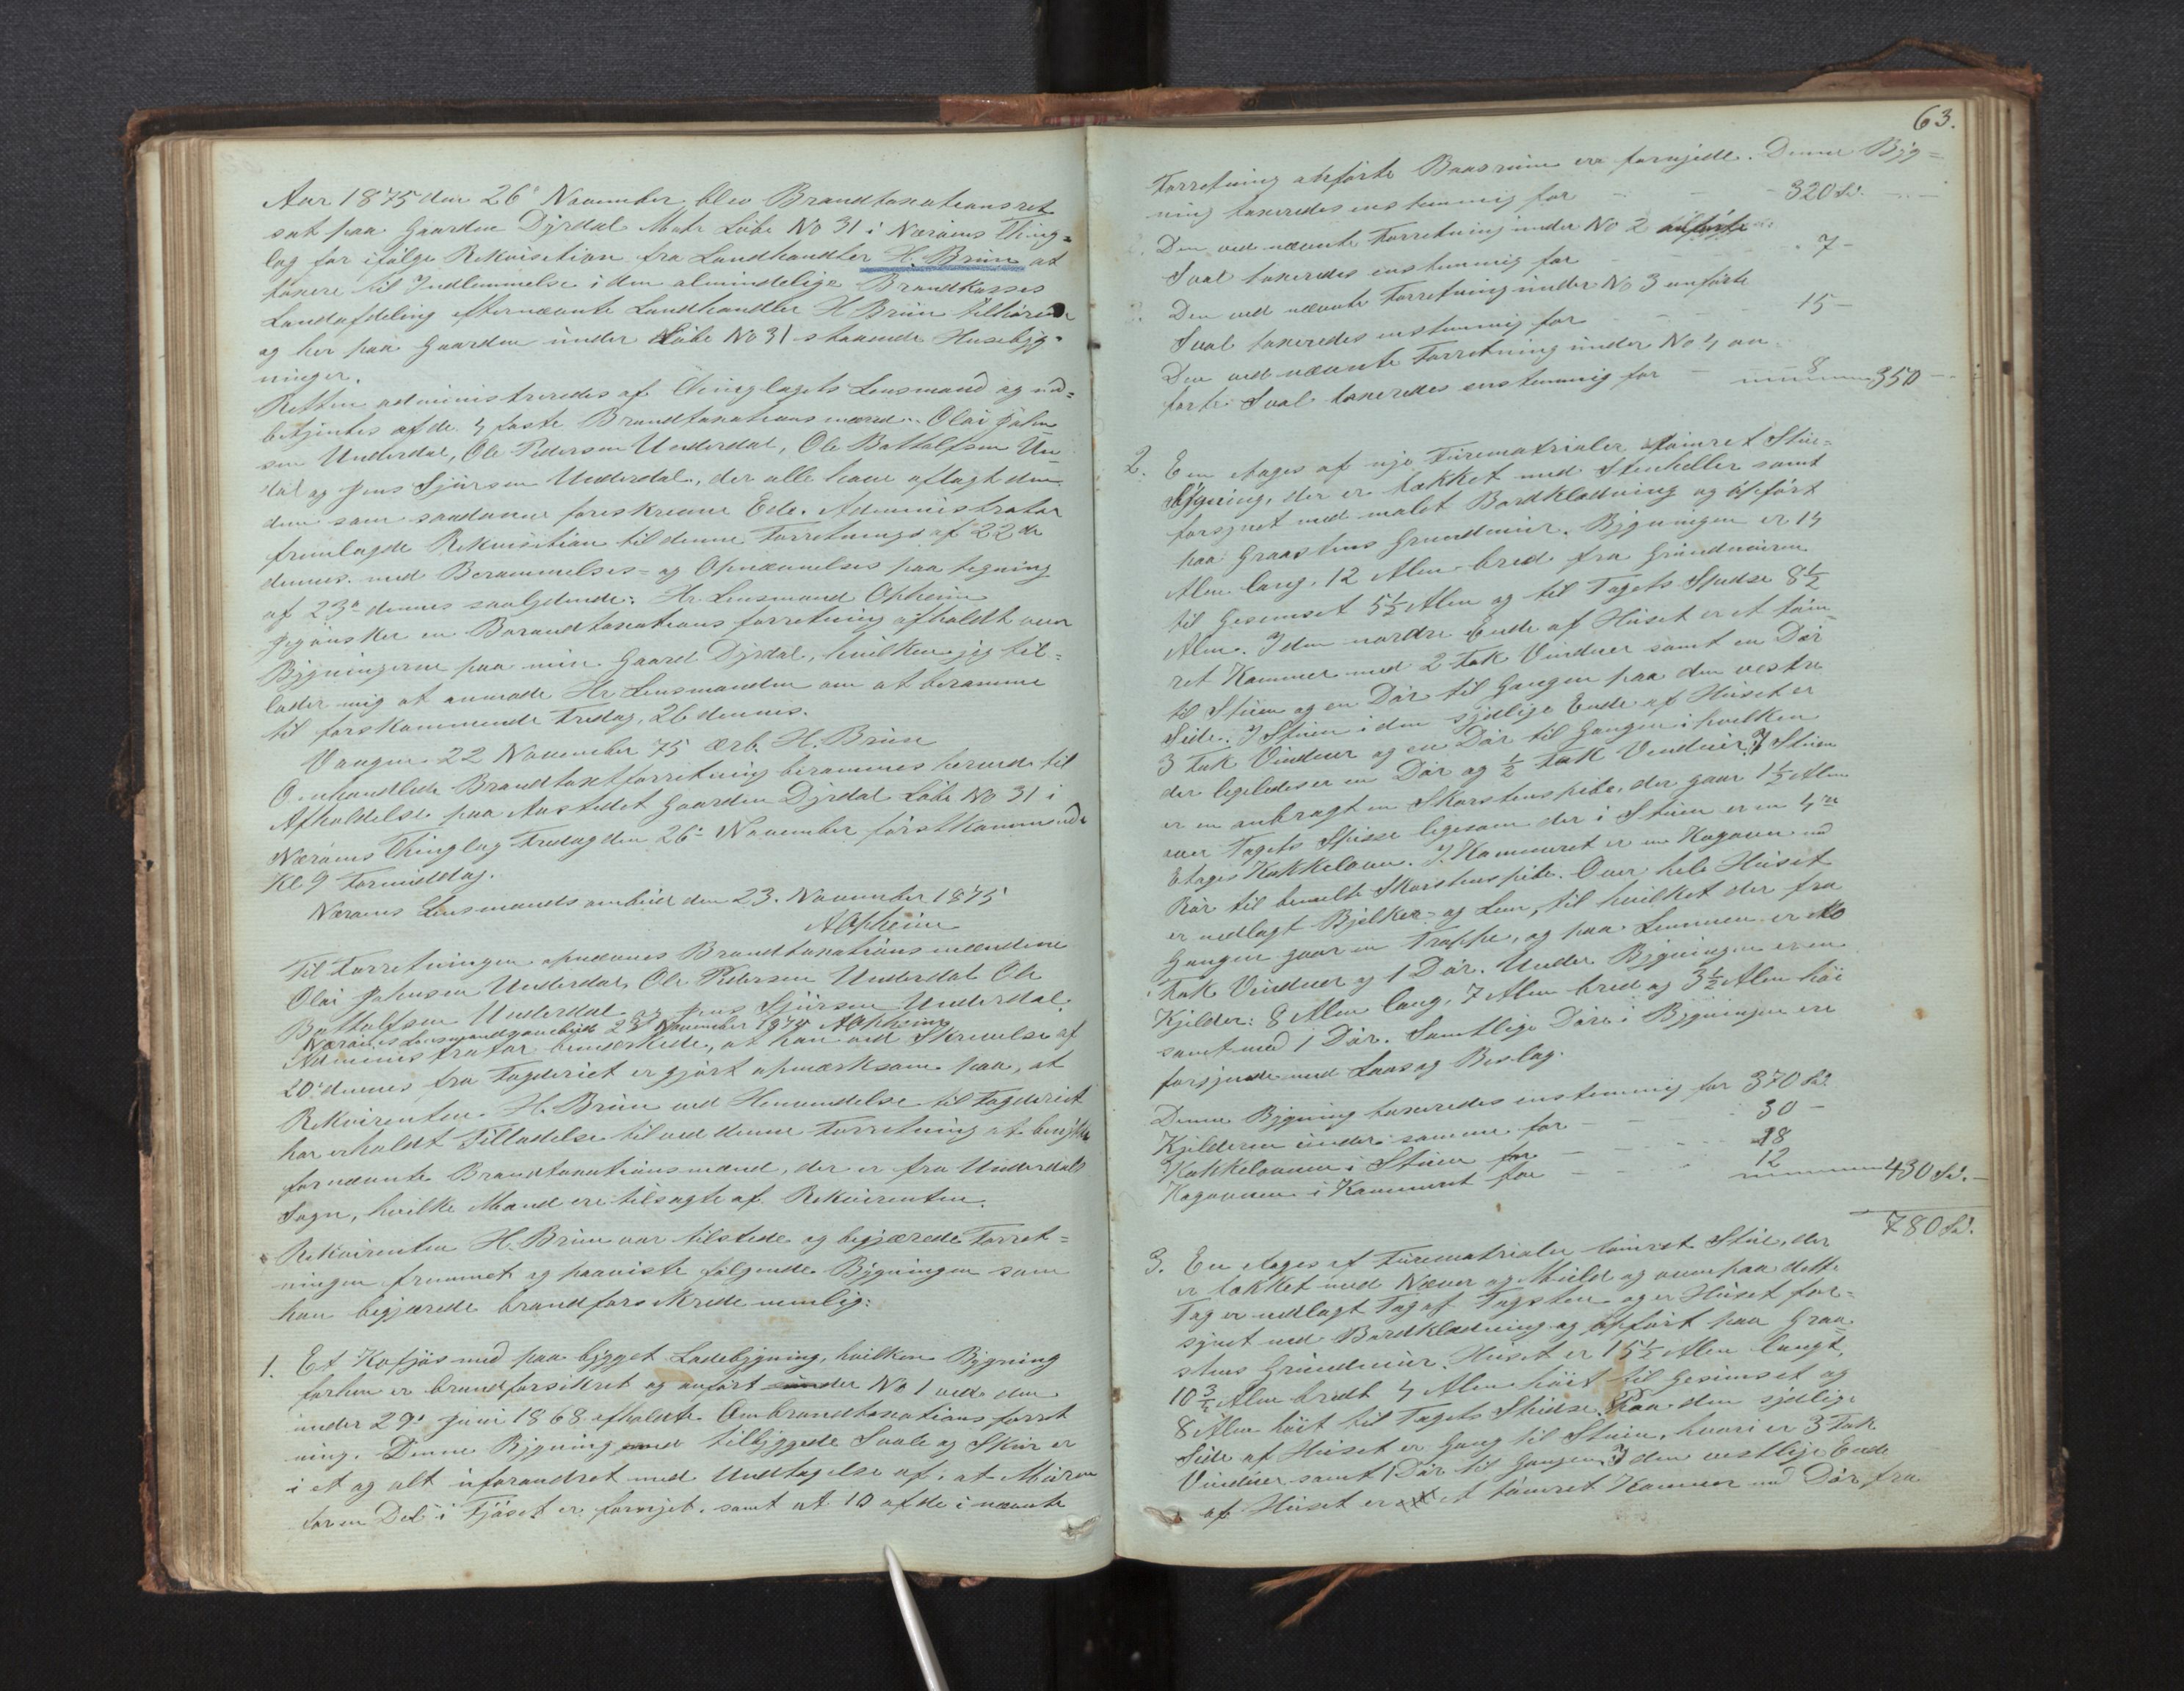 Aar 1875 den 26' November blev Brandtaxationsret
sat paa Gaarden Dyrdal Matr Løbe No 31 i Nærøens Thing-
lag for ifølge Rekvisition fra Landhandler H. Brun at
taxere til Indlemmelse i den almindelige Brandkasses
Landafdeling efternævnte Landhandler H Brun tilhørende
og her paa Gaarden under Løbe No 31 staaende Husebyg-
ninger.
Retten administreredes af Thinglagets Lensmand og med-
betjentes af de 4 faste Brandtaxationsmænd: Olai John-
sen Underdal, Ole Pedersen Underdal, Ole Bottolfsen Un-
dal og Jens Sjursen Underdal, der alle have aflagt den
dem som saadanne foreskrevne Ede. Administrator
fremlagde Rekvisition til denne Forretnings af 22de
dennes med Berammelses- og Opnævnelses paa tegning
af 23de dennes saalydende: Hr Lensmand Opheim
Jeg ønsker en Barandtaxations forretning afholdt over
Bygningerne paa min Gaard Dyrdal, hvilken jeg til-
lader mig at anmode Hr Lensmanden om at beramme
til førskommende Fredag, 26 dennes.
Vangen 22 November 75 ærb. H. Brun
Omhandlede Brandtaxtforretning berammes herved til
Afholdelse paa Aastedet Gaarden Dyrdal Løbe No 31 i
Nærøens Thinglag Fredag den 26' November førstkommende
Kl 9 Formiddag.
Nærøens Lensmandsombud den 23. November 1875
AOpheim
Til Forretningen opnævnes Brandtaxationsmændene
Olai Johnsen Underdal, Ole Pedersen Underdal Ole
Bottolfsen Underdal og Jens Sjursen Underdal.
Nærøens Lensmandsombud 23 November 1875 AOpheim
Administrator bemærkede, at han ved Skrivelse af
20' dennes fra Fogderiet er gjort opmærksom paa, at
Rekvirenten H. Brun ved Henvendelse til Fogderiet
har erholdt Tilladelse til ved denne Forretning at benytte
fornævnte Brandtaxationsmænd, der er fra Underdals
Sogn, hvilke Mænd ere tilsagte af Rekvirenten.
Rekvirenten H. Brun var tilstede og begjærede Forret-
ningen fremmet og paaviste følgende Bygninger som
han begjærede brandforsikrede nemlig:
1. Et Kofjøs med paa bygget Ladebygning, hvilken Bygning
forhen er brandforsikret og anført under No 1 ved den
under 29' Juni 1868 afholdte Ombrandtaxations forret
ning. Denne Bygning med tilbyggede Svale og Skur er
i et og alt uforandret med Undtagelse af: at Muren
for en Del i Fjøset er fornyet, samt at 10 af de i nævnte
63.
Forretning anførte Baasrum ere fornyede. Denne Byg-
ning taxeredes enstemmig for - - - 320 Sd.
Den ved nævnte Forretning under No 2 anførte
Sval taxeredes enstemmig for - - 7 -
Den ved nævnte Forretning under No 3 anførte
Sval taxeredes enstemmig for - - 15 -
Den ved nævnte Forretning under No 4 an-
førte Sval taxeredes enstemmig for - 8 350 -
2. En etages af nye Furematrialer tømret Stue-
bygning, der er takket med Stenheller samt
forsynet med malet Bordklædning og opført
paa Graastens Grundmur. Bygningen er 14
Alen lang, 12 Alen bred fra Grundmuren
til Gesimset 5½ Alen og til Tagets Spidse 8½
Alen. I den nordre Ende af Huset er et tøm-
ret Kammer med 2 Fak Vinduer samt en Dør
til Stuen og en Dør til Gangen paa den vestre
Side. I Stuen i den sydlige Ende af Huset er
3 Fak Vinduer og en Dør til Gangen i hvilken
der ligeledes er en Dør og ½ Fak Vinduer. I Stuen
er en anbragt en Skorstenspibe, der gaar 1½ Alen
over Tagets Spisse ligesom der i Stuen er en 4re
Etages Kakkelovn. I Kammeret er en Kogovn med
Rør til bemelte Skorstenspibe. Over hele Huset
er nedlagt Bjelker- og Lem, til hvilket der fra
Gangen gaar en Trappe, og paa Lemmen er
Fak Vinduer og 1 Dør. Under Bygningen er en
Kjelder: 8 Alen lang, 7 Alen bred og 3½ Alen høi
samt med 1 Dør. Samtlige Døre i Bygningen ere
forsynede med Laas og Beslag.
Denne Bygning taxeredes enstemmig for 370 Sd.
Kjelderen under samme for - - - 30 -
Kakkelovnen i Stuen for - - - 18
Kogovnen i Kammeret for - - - 12 430 Sd. -
780 Sd.
3. En etages af Furematrialer tømret Stue, der
er takket med Næver og Muld og oven paa dette
Tag er nedlagt Tag af Tagsten og er Huset for-
synet med Bordklædning og opført paa Graa-
stens Grundmur. Huset er 15½ Alen langt,
10¾ Alen bredt 4 Alen høit til Gesimset og
8 Alen høit til Tagets Spidse. Paa den sydlige
Side af Huset er Gang til Stuen, hvori er 3 Fak
Vinduer samt 1 Dør til Gangen. I den vestlige Ende
af Huset er et tømret Kammer med Dør fra